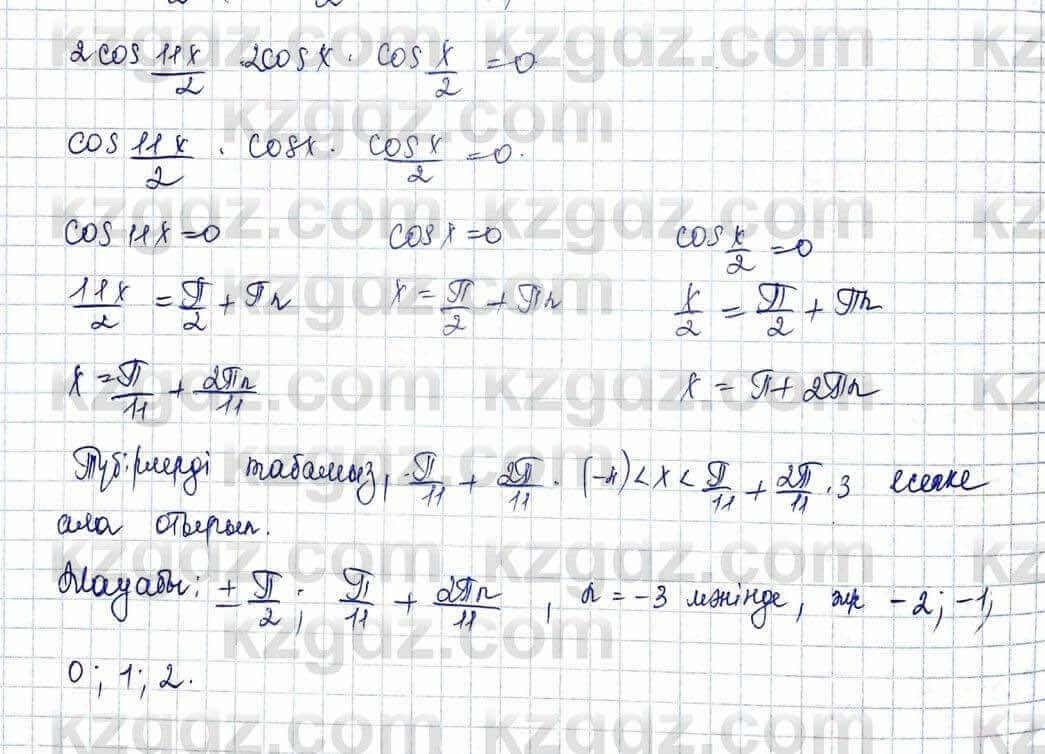 2cos 11x/2 · 2cos x · cos x/2 = 0
cos 11x/2 · cos x · cos x/2 = 0.
cos 11x = 0 cos x = 0 cos x/2 = 0
11x/2 = П/2 + Пn x = П/2 + Пn x/2 = П/2 + Пn
x = П/11 + 2Пn/11 x = П + 2Пn
Түбірлерді табамыз, П/11 + 2П/11 · (-4) < x < П/11 + 2П/11 · 3 ескере
ала отырып.
Жауабы: ± П/2; П/11 + 2Пn/11, n = -3 мәнінде, -2; -1;
0; 1; 2.
kzgdz.com